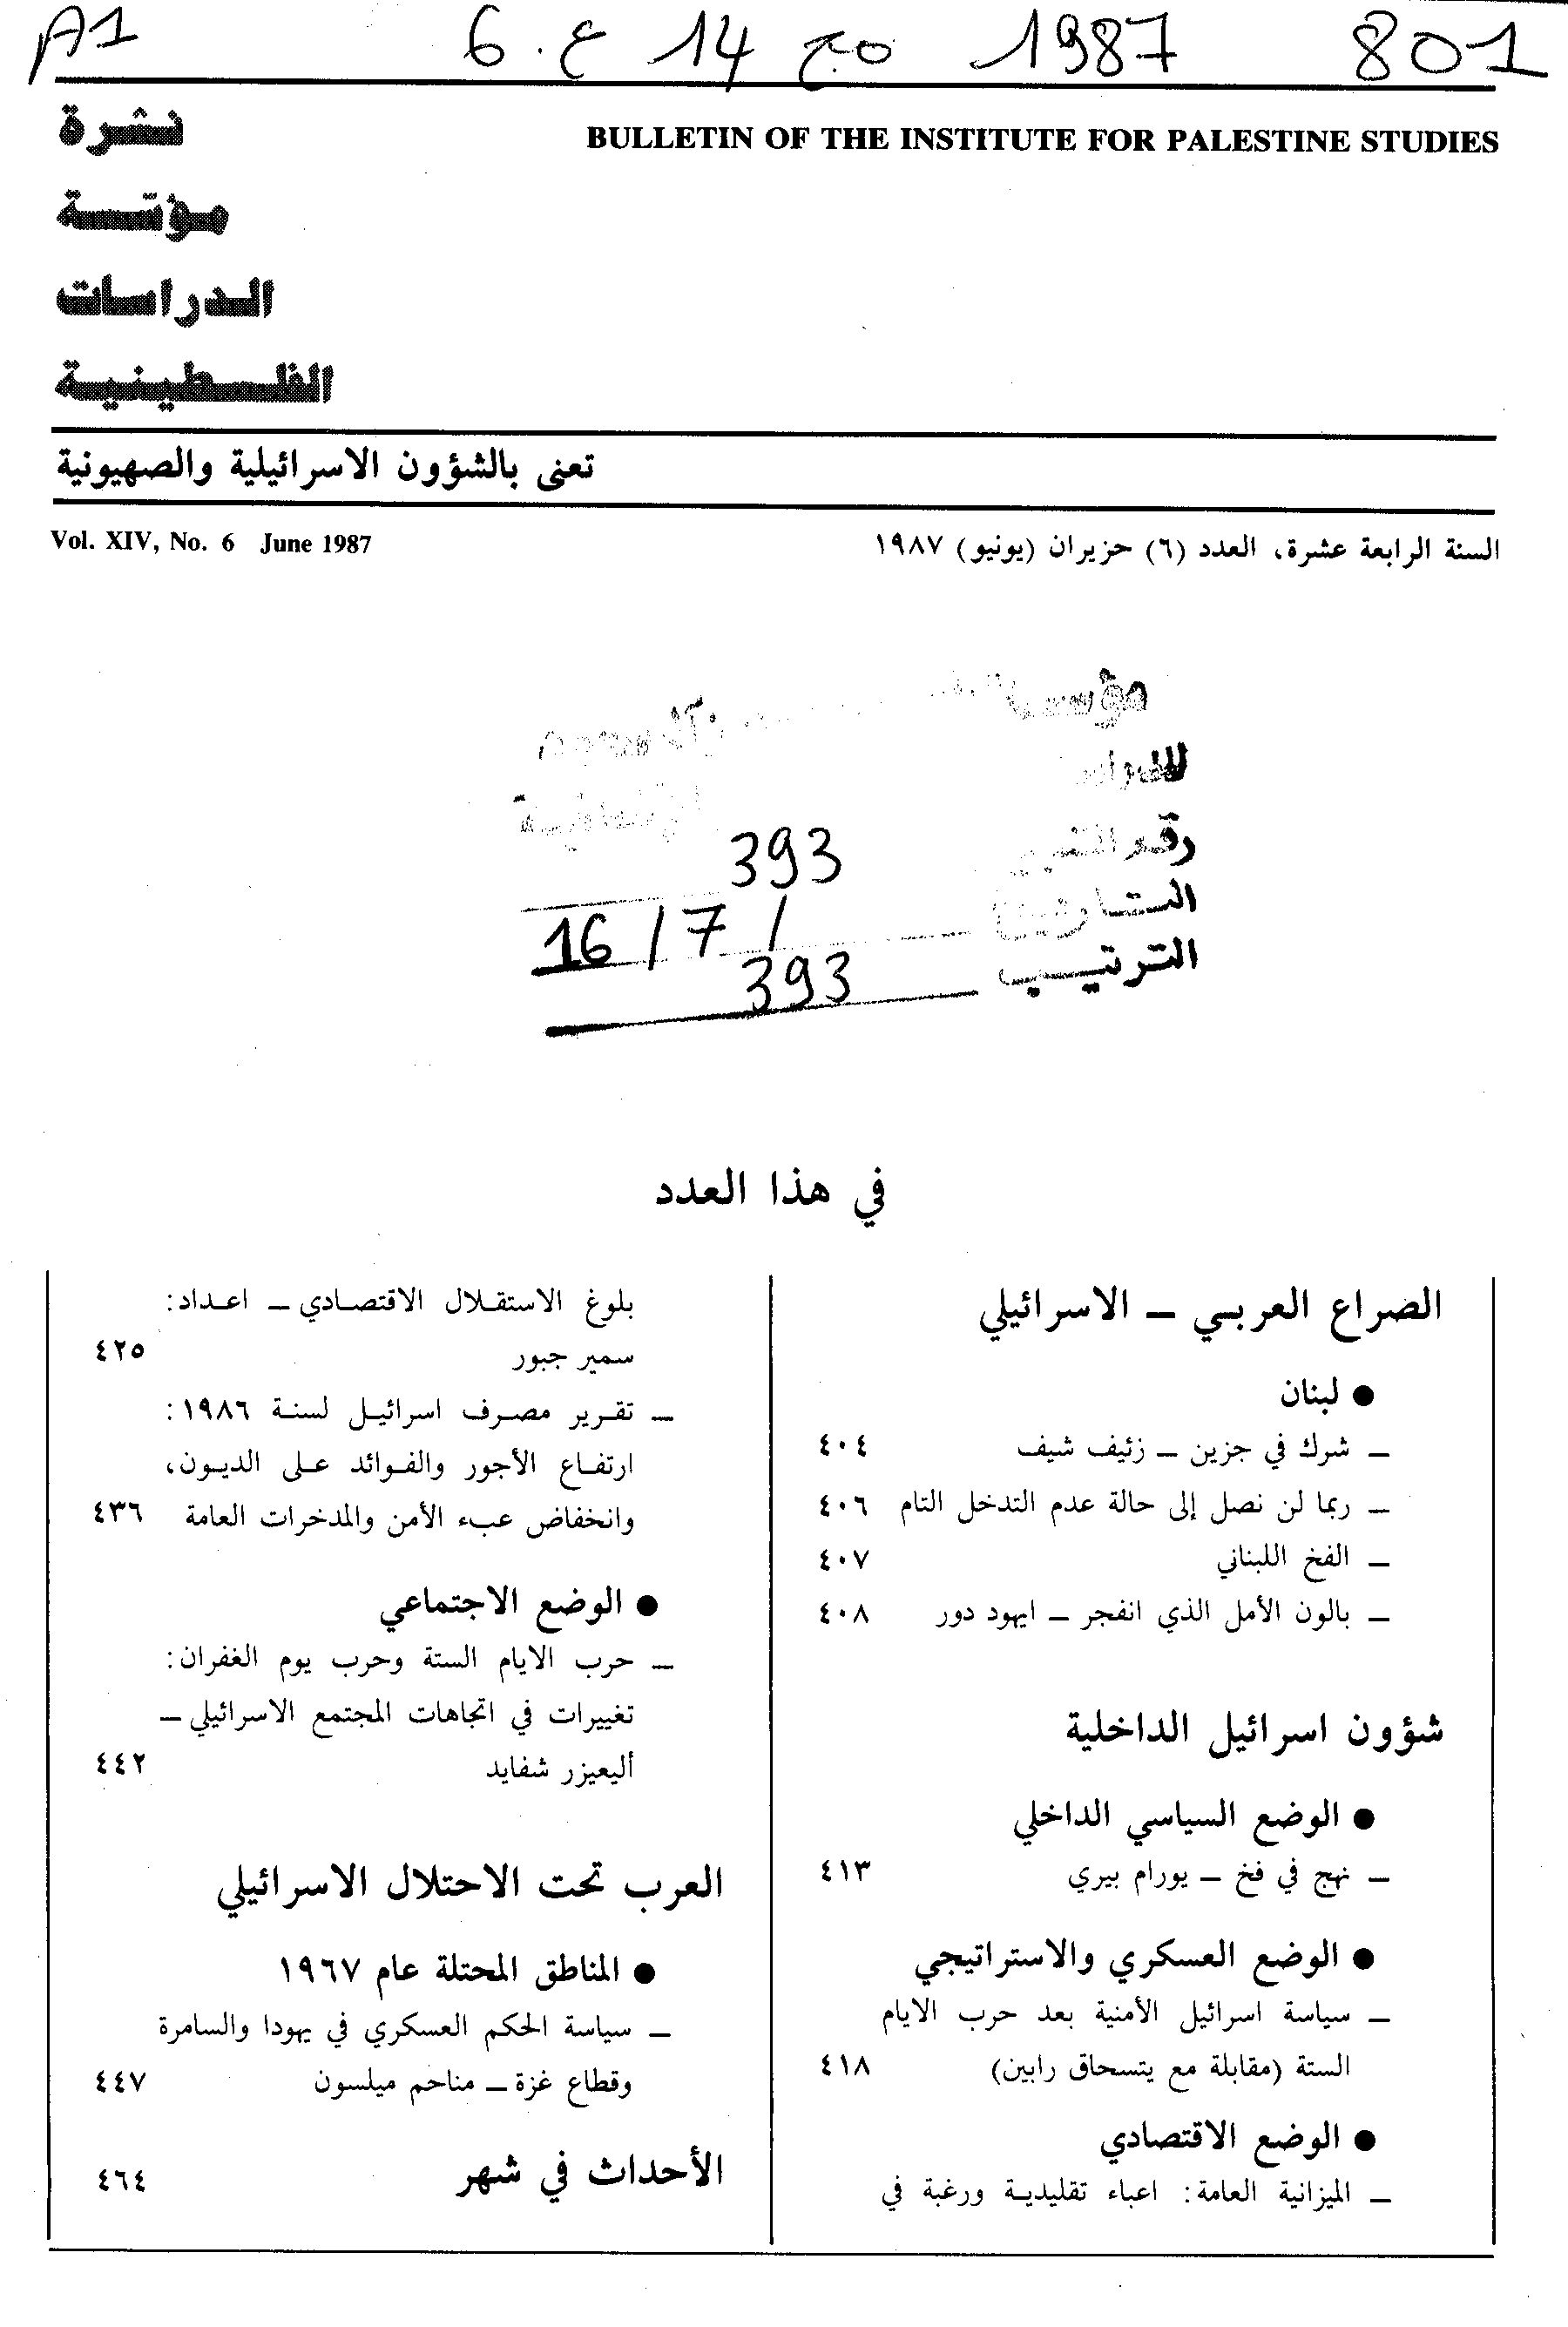 A1 6 .ع 14 مج 1987 801
نشرة
مؤسسة
الدراسات
الفلسطينية
BULLETIN OF THE INSTITUTE FOR PALESTINE STUDIES
تعنى بالشؤون الاسرائيلية والصهيونية
Vol. XIV, No. 6 June 1987
السنة الرابعة عشرة، العدد (٦) حزيران (يونيو) ١٩٨٧
مؤسسة
393
التاريخ 16 / 7 /
الترتيب 393
في هذا العدد
الصراع العربي – الاسرائيلي
● لبنان
– شرك في جزين – زئيف شيف ٤٠٤
– ربما لن نصل إلى حالة عدم التدخل التام ٤٠٦
– الفخ اللبناني ٤٠٧
– بالون الأمل الذي انفجر – ايهود دور ٤٠٨
شؤون اسرائيل الداخلية
● الوضع السياسي الداخلي
– نهج في فخ – يورام بيري ٤١٣
● الوضع العسكري والاستراتيجي
– سياسة اسرائيل الأمنية بعد حرب الايام
الستة (مقابلة مع يتسحاق رابين) ٤١٨
● الوضع الاقتصادي
– الميزانية العامة: اعباء تقليدية ورغبة في
بلوغ الاستقلال الاقتصادي – اعداد:
سمير جبور ٤٢٥
– تقرير مصرف اسرائيل لسنة ١٩٨٦:
ارتفاع الأجور والفوائد على الديون،
وانخفاض عبء الأمن والمدخرات العامة ٤٣٦
● الوضع الاجتماعي
– حرب الايام الستة وحرب يوم الغفران:
تغييرات في اتجاهات المجتمع الاسرائيلي –
أليعيزر شفايد ٤٤٢
العرب تحت الاحتلال الاسرائيلي
● المناطق المحتلة عام ١٩٦٧
– سياسة الحكم العسكري في يهودا والسامرة
وقطاع غزة – مناحم ميلسون ٤٤٧
الأحداث في شهر ٤٦٤